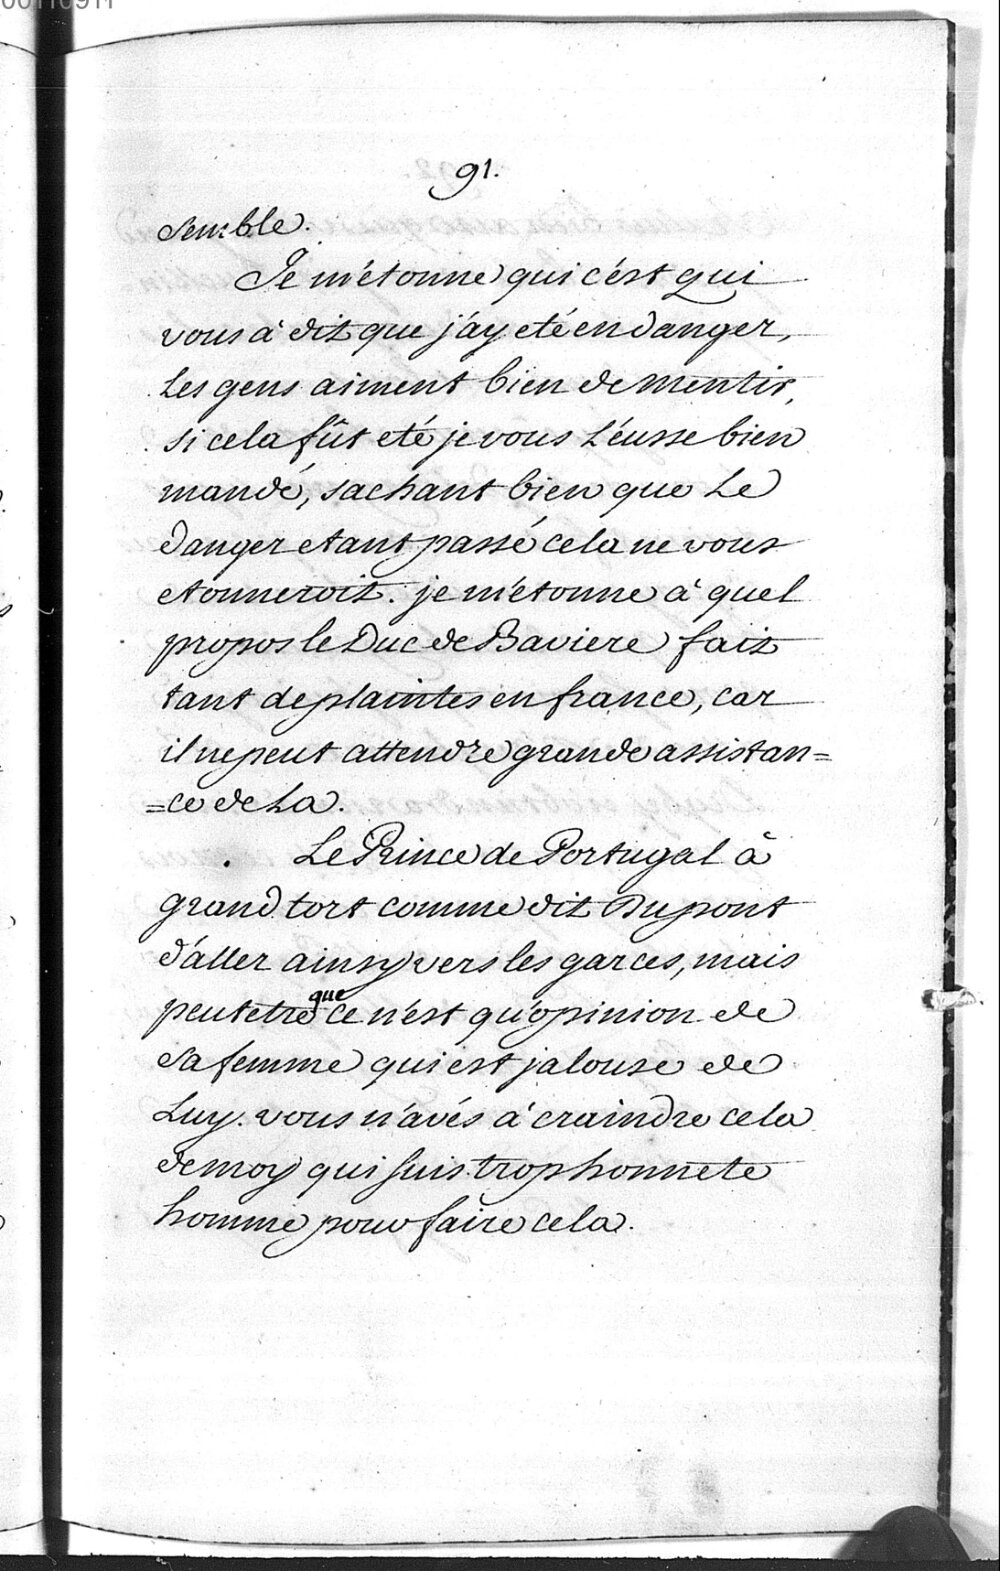 00110911
91.
semble.
Je m'étonne qui c'ést qui
vous à dit que j'áy eté en danger,
Les gens aiment bien de mentir,
si cela fût eté je vous L'éusse bien
mandé, sachant bien que Le
danger etant passé cela ne vous
etonneroit. je m'étonne à quel
propos le Duc de Baviere fait
tant de plaintes en france, car
il ne peut attendre grande assistan=
=ce de La.
Le Prince de Portugal à
grand tort comme dit Dupont
d'áller ainsy vers les garces, mais
peutetre que ce n'ést qu'ópinion de
sa femme qui est jalouse de
Luy. vous n'avés à craindre cela
de moy qui suis trop honnete
homme pour faire cela.